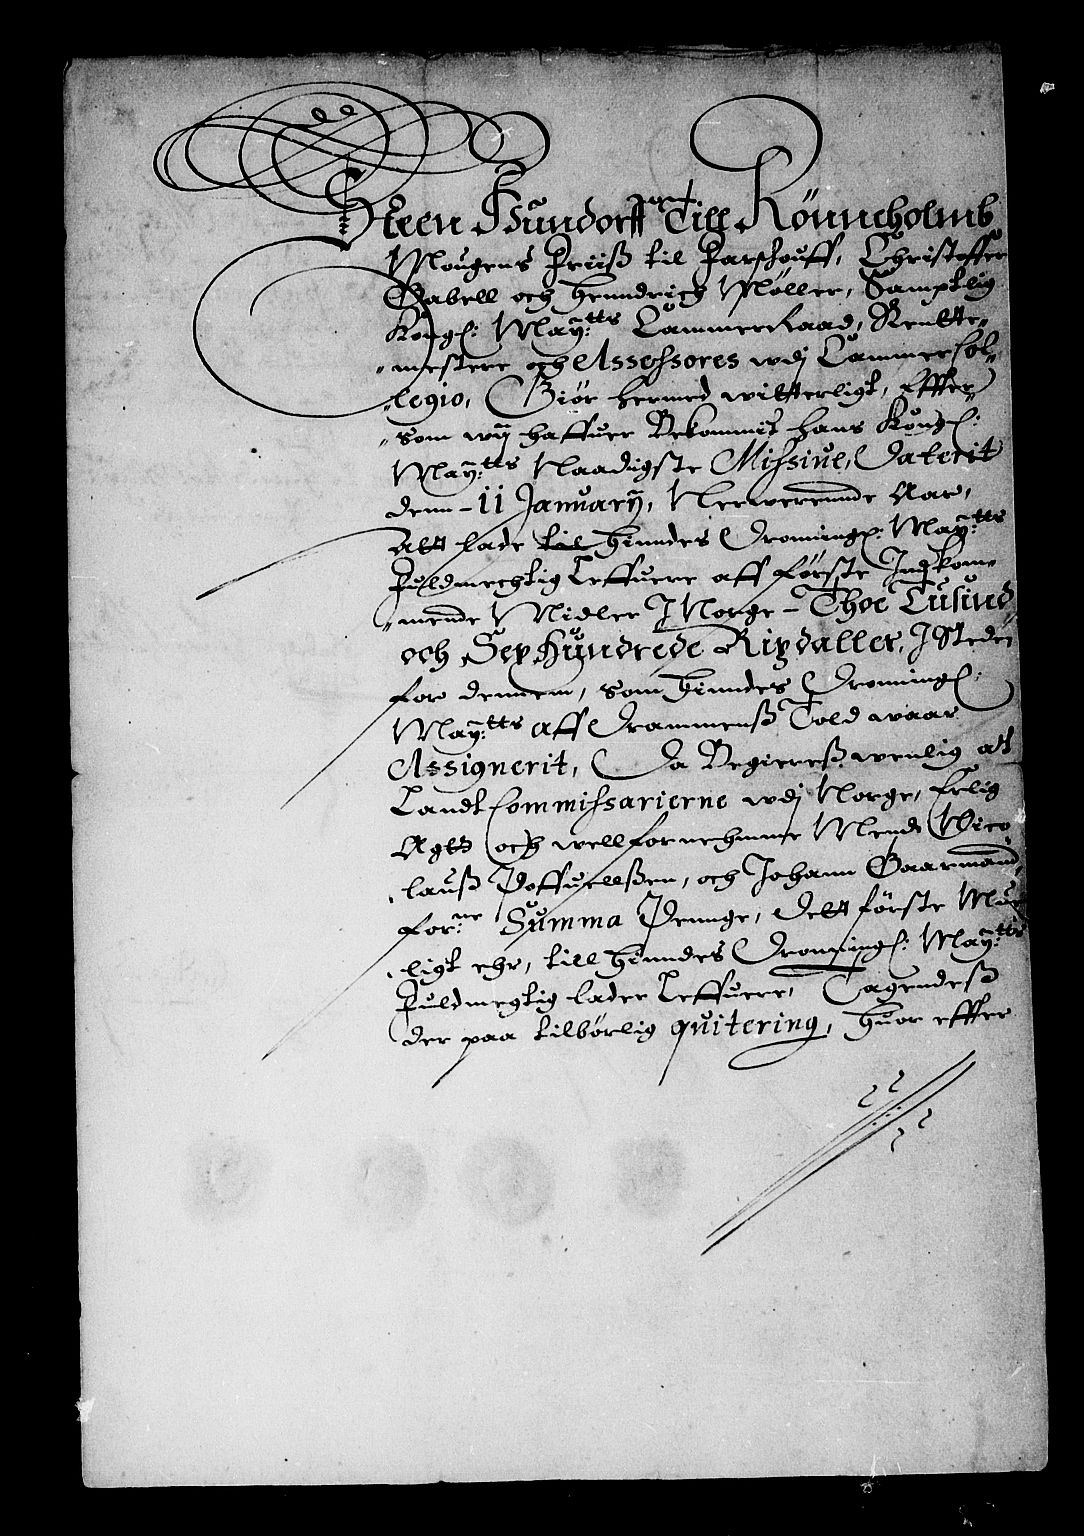 Steen Hundorff Till Rönneholmb
Mougens Friiß til Farschouff, Christoffer
Gabell och Henndrich Möller, Samptlig
Kongl: May:tts CammerRaad, Rentte-
mestere och Assessores wdj Cammer Col-
legio, Giör hermed witterligt, Effter-
som wij haffuer Bekommit hans Kongl:
May:tts Naadigste Missiue, Daterit
denn - 11 January, Nerwerennde Aar,
Att lade til Hinndes Dronningl: May:tts
Fuldmechtig Leffuere aff förste Indkom-
mende Midler J Norge - Thoe Tusind
och Sex Hundrede Rixdaller, J Steden
for dennem, som Hinndes Dronningl:
May:tts aff Drammenß Told waar
Assignerit, Da Begiereß wenlig att
Landt Commissarierne wdj Norge, Erlig
Agtb och wellfornehmme Mend Nico-
lauß Poffuellßen, och Johann Gaarmand,
for:ne Summa Penge, Dett förste Mue-
ligt ehr, till Hinndes Dronningl: May:tts
Fuldmegtig lader Leffuere, Tagendeß
der paa tilbörlig quitering, Huor effter